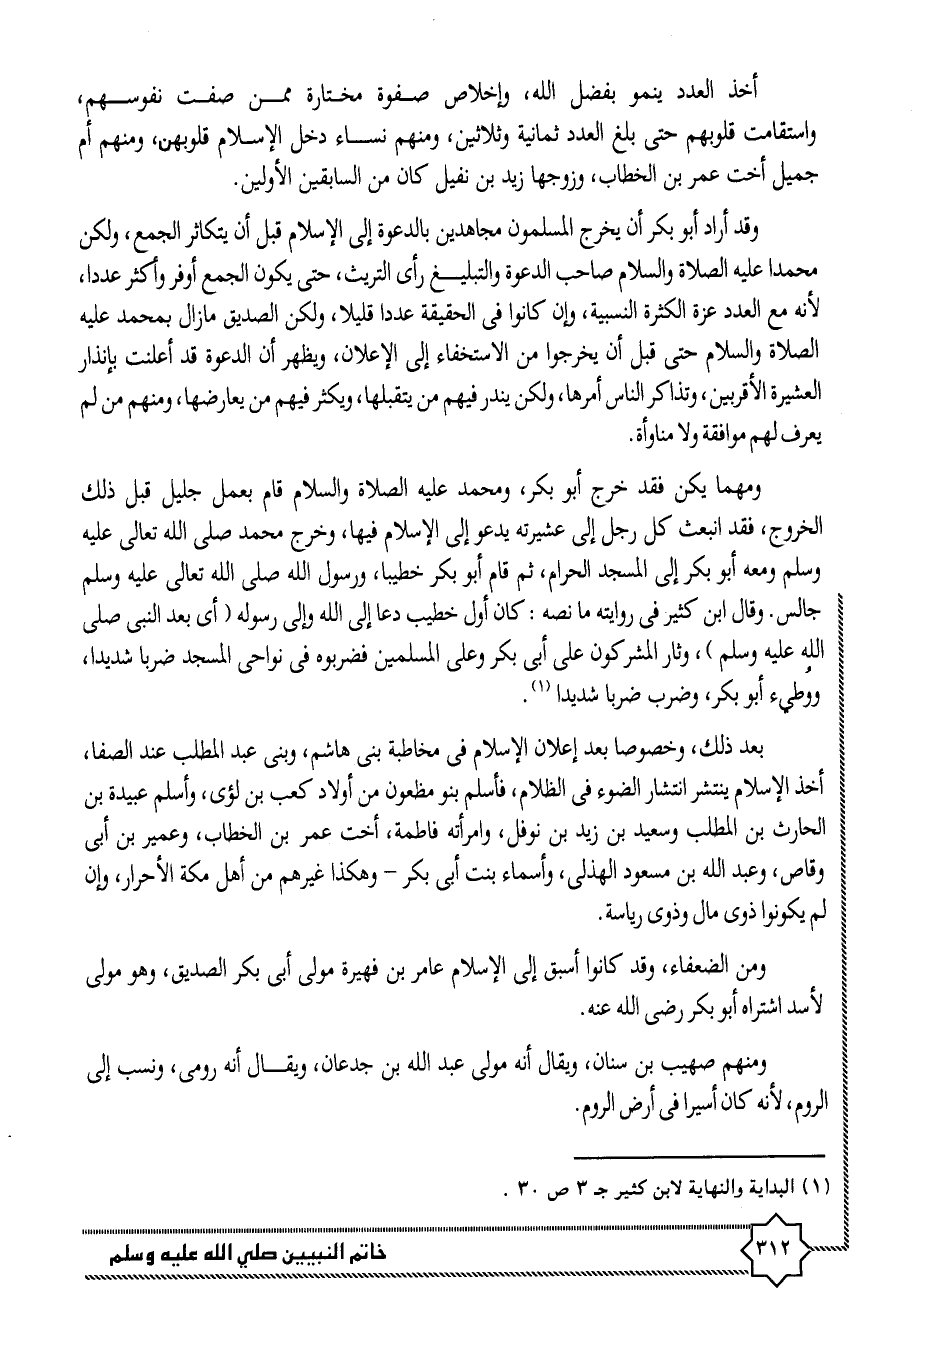 أخذ العدد ينمو بفضل الله، وإخلاص صفوة مختارة ممن صفت نفوسهم،
واستقامت قلوبهم حتى بلغ العدد ثمانية وثلاثين، ومنهم نساء دخل الإسلام قلوبهن، ومنهم أم
جميل أخت عمر بن الخطاب، وزوجها زيد بن نفيل كان من السابقين الأولين.
وقد أراد أبو بكر أن يخرج المسلمون مجاهدين بالدعوة إلى الإسلام قبل أن يتكاثر الجمع، ولكن
محمدا عليه الصلاة والسلام صاحب الدعوة والتبليغ رأى التريث، حتى يكون الجمع أوفر وأكثر عددا،
لأنه مع العدد عزة الكثرة النسبية، وإن كانوا فى الحقيقة عددا قليلا، ولكن الصديق مازال بمحمد عليه
الصلاة والسلام حتى قبل أن يخرجوا من الاستخفاء إلى الإعلان، ويظهر أن الدعوة قد أعلنت بإنذار
العشيرة الأقربين، وتذاكر الناس أمرها، ولكن يندر فيهم من يتقبلها، ويكثر فيهم من يعارضها، ومنهم من لم
يعرف لهم موافقة ولا مناوأة.
ومهما يكن فقد خرج أبو بكر، ومحمد عليه الصلاة والسلام قام بعمل جليل قبل ذلك
الخروج، فقد انبعث كل رجل إلى عشيرته يدعو إلى الإسلام فيها، وخرج محمد صلى الله تعالى عليه
وسلم ومعه أبو بكر إلى المسجد الحرام، ثم قام أبو بكر خطيبا، ورسول الله صلى الله تعالى عليه وسلم
جالس. وقال ابن كثير فى روايته ما نصه : كان أول خطيب دعا إلى الله وإلى رسوله ( أى بعد النبى صلى
الله عليه وسلم )، وثار المشركون على أبى بكر وعلى المسلمين فضربوه فى نواحى المسجد ضربا شديدا،
ووطيء أبو بكر، وضرب ضربا شديدا (١).
بعد ذلك، وخصوصا بعد إعلان الإسلام فى مخاطبة بنى هاشم، وبنى عبد المطلب عند الصفا،
أخذ الإسلام ينتشر انتشار الضوء فى الظلام، فأسلم بنو مظعون من أولاد كعب بن لؤى، وأسلم عبيدة بن
الحارث بن المطلب وسعيد بن زيد بن نوفل، وامرأته فاطمة، أخت عمر بن الخطاب، وعمير بن أبى
وقاص، وعبد الله بن مسعود الهذلى، وأسماء بنت أبى بكر – وهكذا غيرهم من أهل مكة الأحرار، وإن
لم يكونوا ذوى مال وذوى رياسة.
ومن الضعفاء، وقد كانوا أسبق إلى الإسلام عامر بن فهيرة مولى أبى بكر الصديق، وهو مولى
لأسد اشتراه أبو بكر رضى الله عنه.
ومنهم صهيب بن سنان، ويقال أنه مولى عبد الله بن جدعان، ويقال أنه رومى، ونسب إلى
الروم، لأنه كان أسيرا فى أرض الروم.
(١) البداية والنهاية لابن كثير جـ ٣ ص ٣٠ .
٣١٢
خاتم النبيين صلي الله عليه وسلم